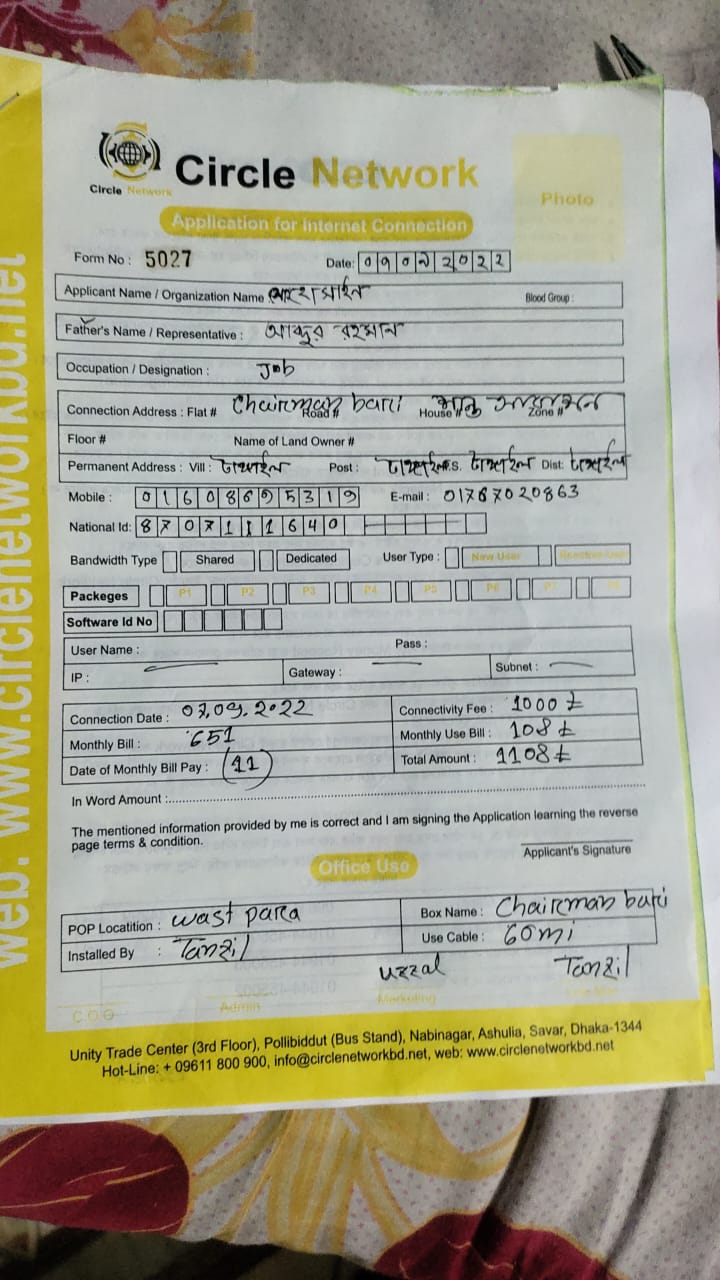 Circle Network
Circle Network
Photo
Application for Internet Connection
Form No : 5027
Date: 09092022
Applicant Name / Organization Name
Blood Group :
Father's Name / Representative : আব্দুর রহমান
Occupation / Designation : Job
Connection Address : Flat # Chairman bari Road # House # Zone #
Floor # Name of Land Owner #
Permanent Address : Vill : টাঙ্গাইল Post : টাঙ্গাইল P.S. টাঙ্গাইল Dist: টাঙ্গাইল
Mobile : 01608695319 E-mail : 01767020863
National Id: 8707111640
Bandwidth Type Shared Dedicated User Type : New User
Packeges P1 P2 P3 P4 P5 P6 P7 P8
Software Id No
User Name : Pass :
IP : Gateway : Subnet :
Connection Date : 07.09.2022 Connectivity Fee : 1000 ৳
Monthly Bill : 651 Monthly Use Bill : 108 ৳
Date of Monthly Bill Pay : (11) Total Amount : 1108 ৳
In Word Amount :
The mentioned information provided by me is correct and I am signing the Application learning the reverse
page terms & condition.
Applicant's Signature
Office Use
POP Locatition : wast para Box Name : Chairman bari
Installed By : Tanzil Use Cable : 60mi
uzzal Tanzil
C.O.O Admin Marketing
Unity Trade Center (3rd Floor), Pollibiddut (Bus Stand), Nabinagar, Ashulia, Savar, Dhaka-1344
Hot-Line: + 09611 800 900, info@circlenetworkbd.net, web: www.circlenetworkbd.net
web: www.circlenetworkbd.net